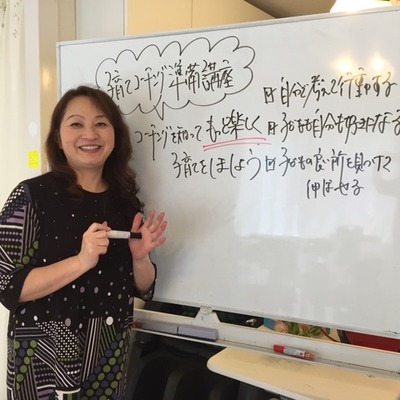 子育てコーチング準備講座
コーチングを知ってもっと楽しく
子育てをしましょう
自分で考えて行動する
子どもも自分も好きになる
子どもの良い所を見つけて
伸ばせる